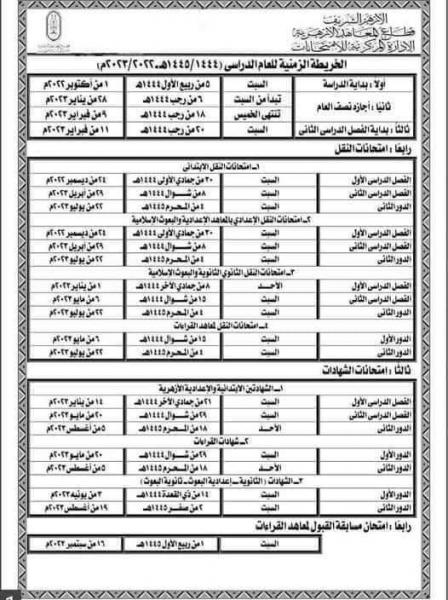 الأزهر الشريف
قطاع المعاهد الأزهرية
الإدارة المركزية للامتحانات
الخريطة الزمنية للعام الدراسى (١٤٤٥/١٤٤٤هـ-٢٠٢٣/٢٠٢٢م)
أولاً : بداية الدراسة السبت ٥ من ربيع الأول ١٤٤٤هـ ١ من أكتوبر ٢٠٢٢م
ثانياً : أجازة نصف العام تبدأ من السبت ٦ من رجب ١٤٤٤هـ ٢٨ من يناير ٢٠٢٣م
تنتهى الخميس ١٨ من رجب ١٤٤٤هـ ٩ من فبراير ٢٠٢٣م
ثالثاً : بداية الفصل الدراسى الثانى السبت ٢٠ من رجب ١٤٤٤هـ ١١ من فبراير ٢٠٢٣م
رابعاً : امتحانات النقل
١- امتحانات النقل الابتدائى
الفصل الدراسى الأول السبت ٣٠ من جمادي الأولى ١٤٤٤هـ ٢٤ من ديسمبر ٢٠٢٢م
الفصل الدراسى الثانى السبت ٨ من شوال ١٤٤٤هـ ٢٩ من أبريل ٢٠٢٣م
الدور الثانى السبت ٤ من المحرم ١٤٤٥هـ ٢٢ من يوليو ٢٠٢٣م
٢- امتحانات النقل الإعدادي بالمعاهد الإعدادية والبعوث الإسلامية
الفصل الدراسى الأول السبت ٣٠ من جمادي الأولى ١٤٤٤هـ ٢٤ من ديسمبر ٢٠٢٢م
الفصل الدراسى الثانى السبت ٨ من شوال ١٤٤٤هـ ٢٩ من أبريل ٢٠٢٣م
الدور الثانى السبت ٤ من المحرم ١٤٤٥هـ ٢٢ من يوليو ٢٠٢٣م
٣- امتحانات النقل الثانوي الثانوية والبعوث الإسلامية
الفصل الدراسى الأول الأحد ٨ من جمادي الآخر ١٤٤٤هـ ١ من يناير ٢٠٢٣م
الفصل الدراسى الثانى السبت ١٥ من شوال ١٤٤٤هـ ٦ من مايو ٢٠٢٣م
الدور الثانى السبت ٤ من المحرم ١٤٤٥هـ ٢٢ من يوليو ٢٠٢٣م
٤- امتحانات النقل لمعاهد القراءات
الدور الأول السبت ١٥ من شوال ١٤٤٤هـ ٦ من مايو ٢٠٢٣م
الدور الثانى السبت ٤ من المحرم ١٤٤٥هـ ٢٢ من يوليو ٢٠٢٣م
ثالثاً : امتحانات الشهادات
١- الشهادتين الابتدائية والإعدادية الأزهرية
الفصل الدراسى الأول السبت ٢١ من جمادي الآخر ١٤٤٤هـ ١٤ من يناير ٢٠٢٣م
الفصل الدراسى الثانى السبت ٢٩ من شوال ١٤٤٤هـ ٢٠ من مايو ٢٠٢٣م
الدور الثانى الأحد ١٨ من المحرم ١٤٤٥هـ ٥ من أغسطس ٢٠٢٣م
٢- شهادات القراءات
الدور الأول السبت ٢٩ من شوال ١٤٤٤هـ ٢٠ من مايو ٢٠٢٣م
الدور الثانى الأحد ١٨ من المحرم ١٤٤٥هـ ٥ من أغسطس ٢٠٢٣م
٣- الشهادات (الثانوية - إعدادية البعوث - ثانوية البعوث)
الفصل الدراسى الأول السبت ١٤ من ذي القعدة ١٤٤٤هـ ٣ من يونيه ٢٠٢٣م
الفصل الدراسى الثانى السبت ٢ من صفر ١٤٤٥هـ ١٩ من أغسطس ٢٠٢٣م
رابعاً : امتحان مسابقة القبول لمعاهد القراءات
السبت ١ من ربيع الأول ١٤٤٥هـ ١٦ من سبتمبر ٢٠٢٣م